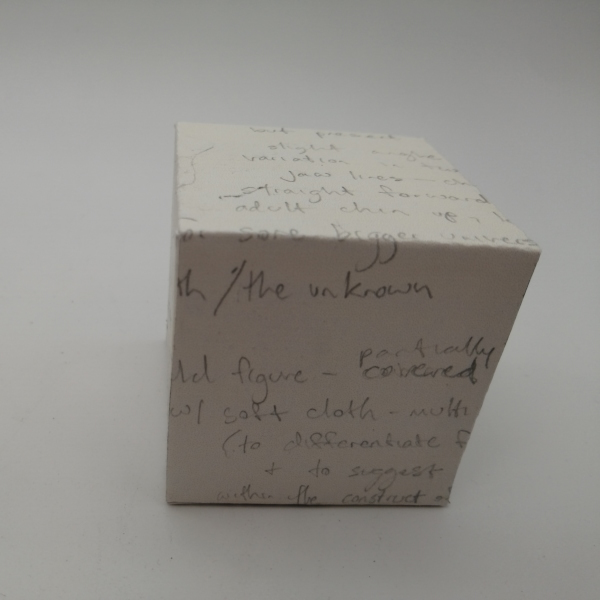 but present
slight angle
variation
jaw lines
straight forward
adult chin up,
for some bigger univers
th / the unknown
ld figure - partially covered
w/ soft cloth - multi
(to differentiate f
+ to suggest
within the construct of